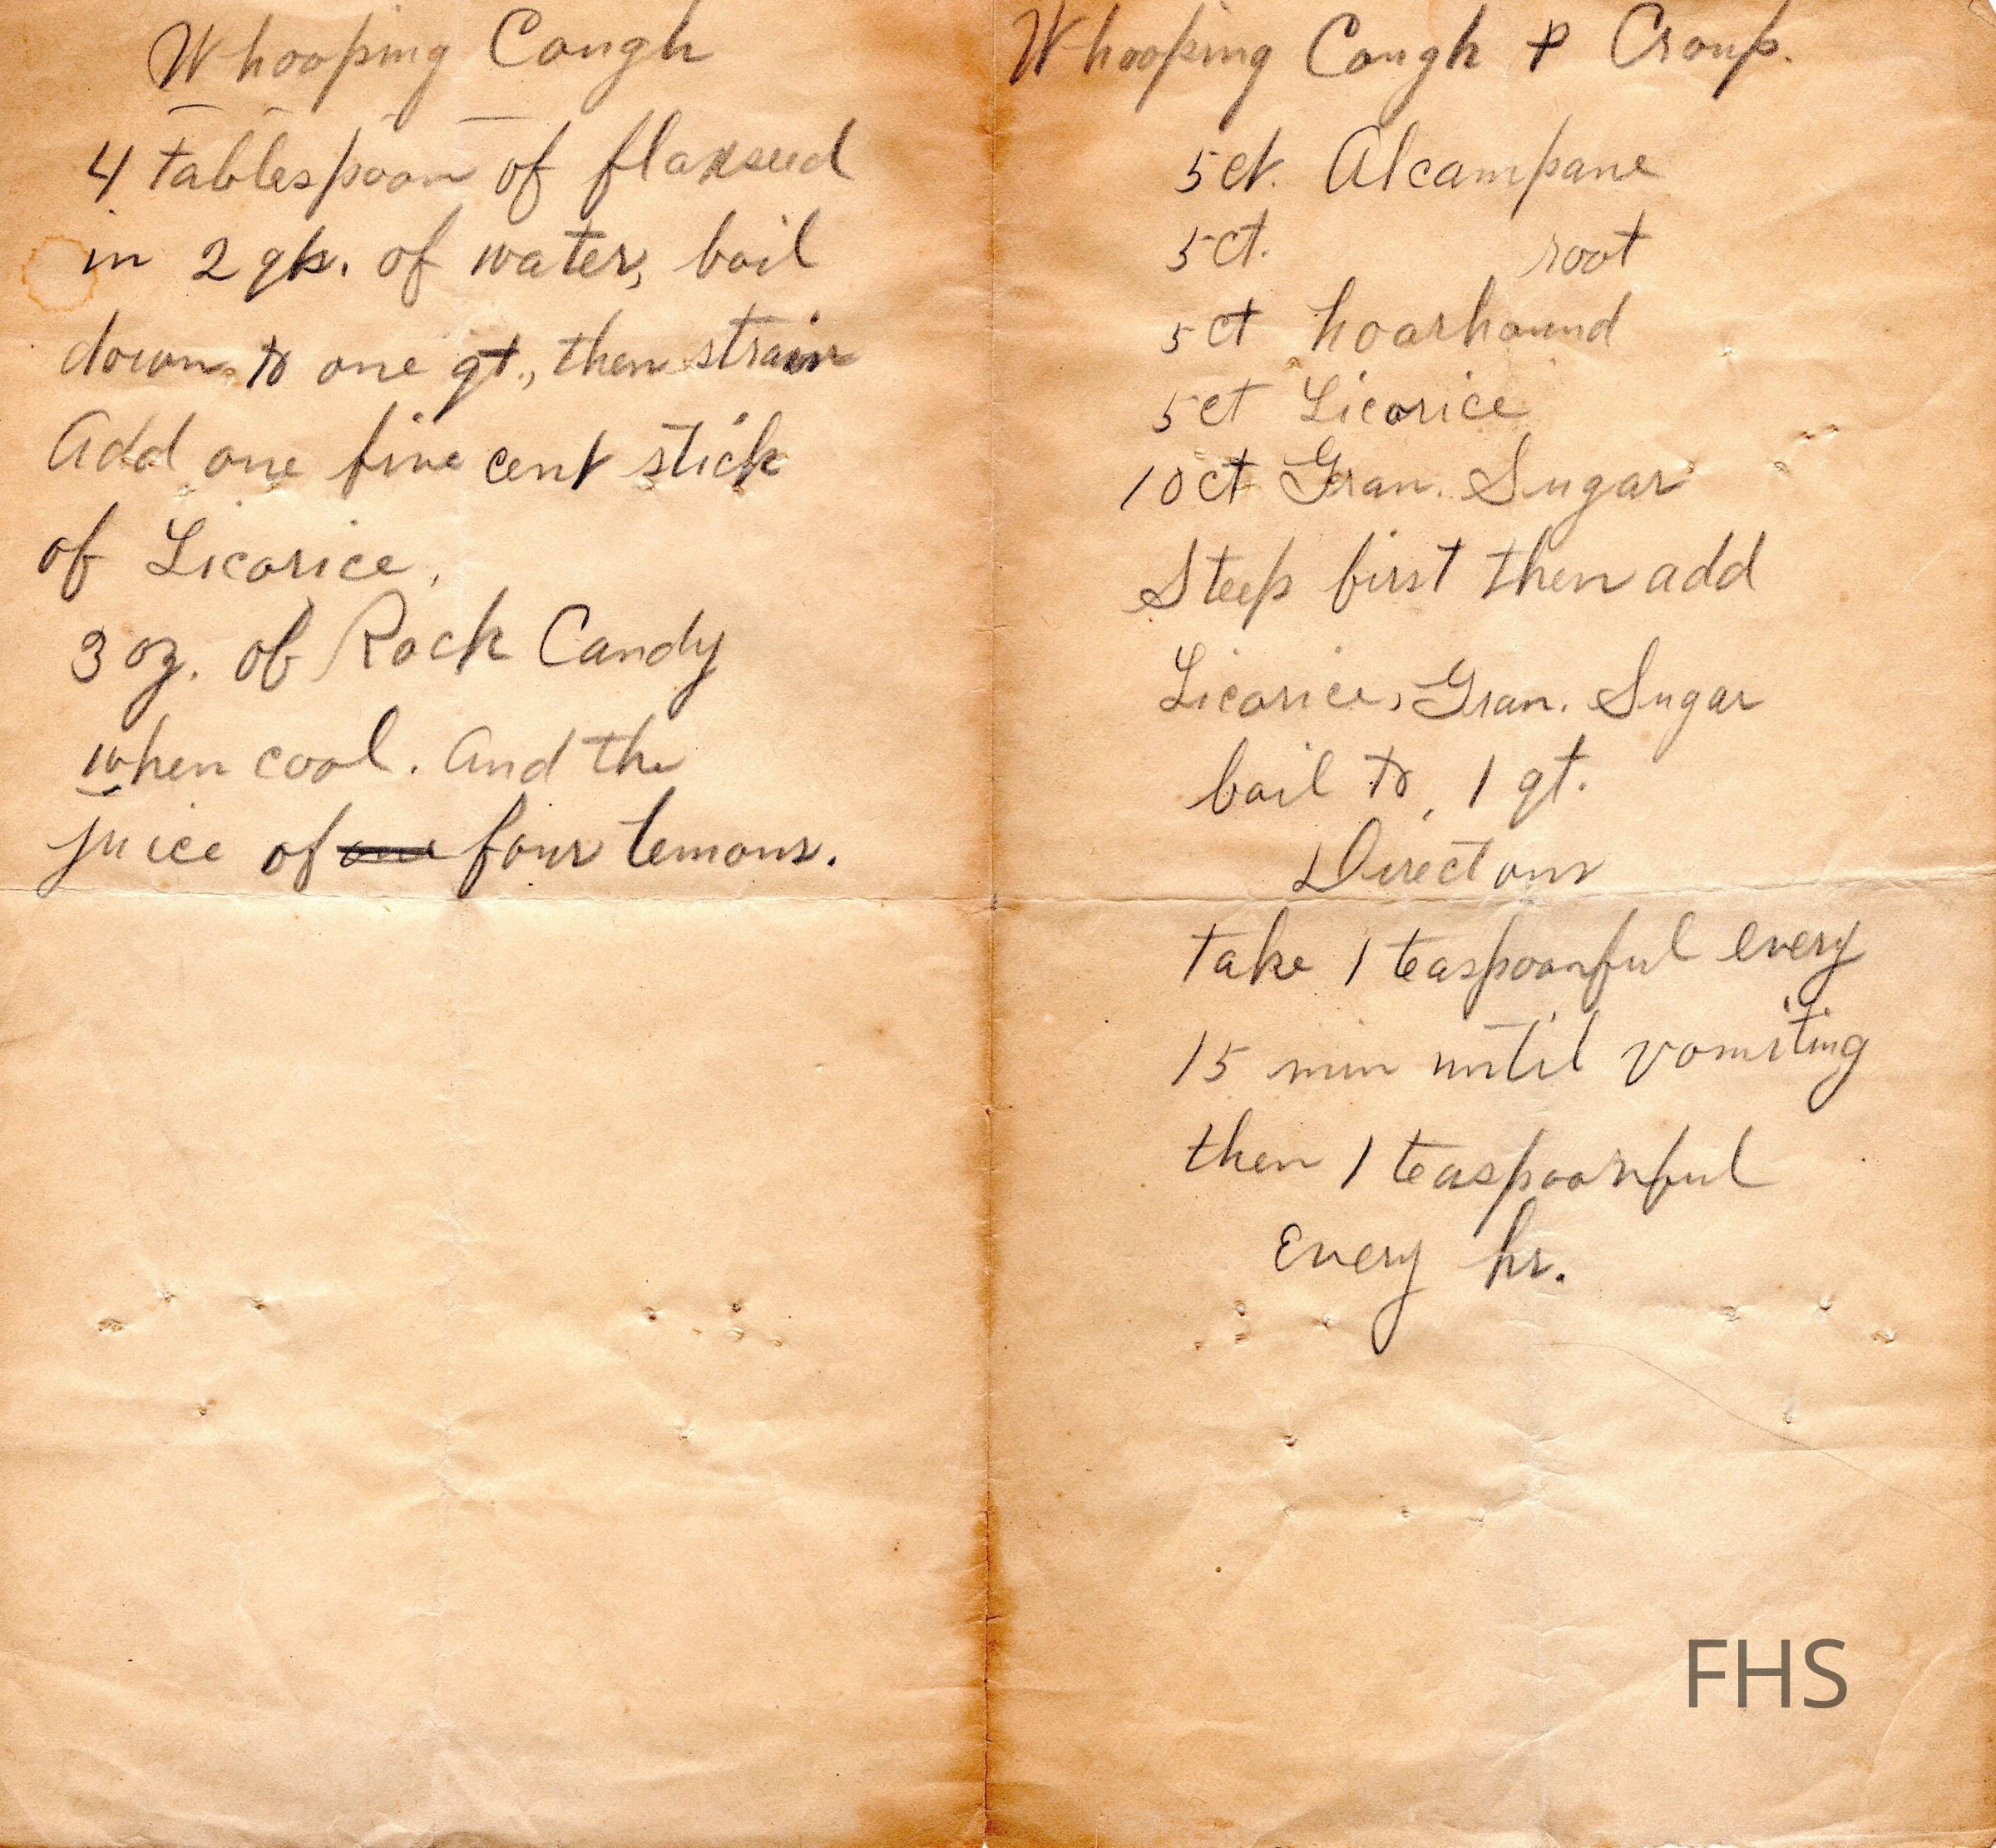 Whooping Cough
4 tablespoon of flaxseed
in 2 qts. of water, boil
down to one qt., then strain
Add one five cent stick
of Licorice.
3 oz. of Rock Candy
when cool. And the
juice of one four lemons.
Whooping Cough & Croup.
5 ct. Alcampane
5 ct. root
5 ct hoarhound
5 ct Licorice
10 ct Gran. Sugar
Steep first then add
Licorice, Gran. Sugar
boil to 1 qt.
Directons
take 1 teaspoonful every
15 min until vomiting
then 1 teaspoonful
Every hr.
FHS